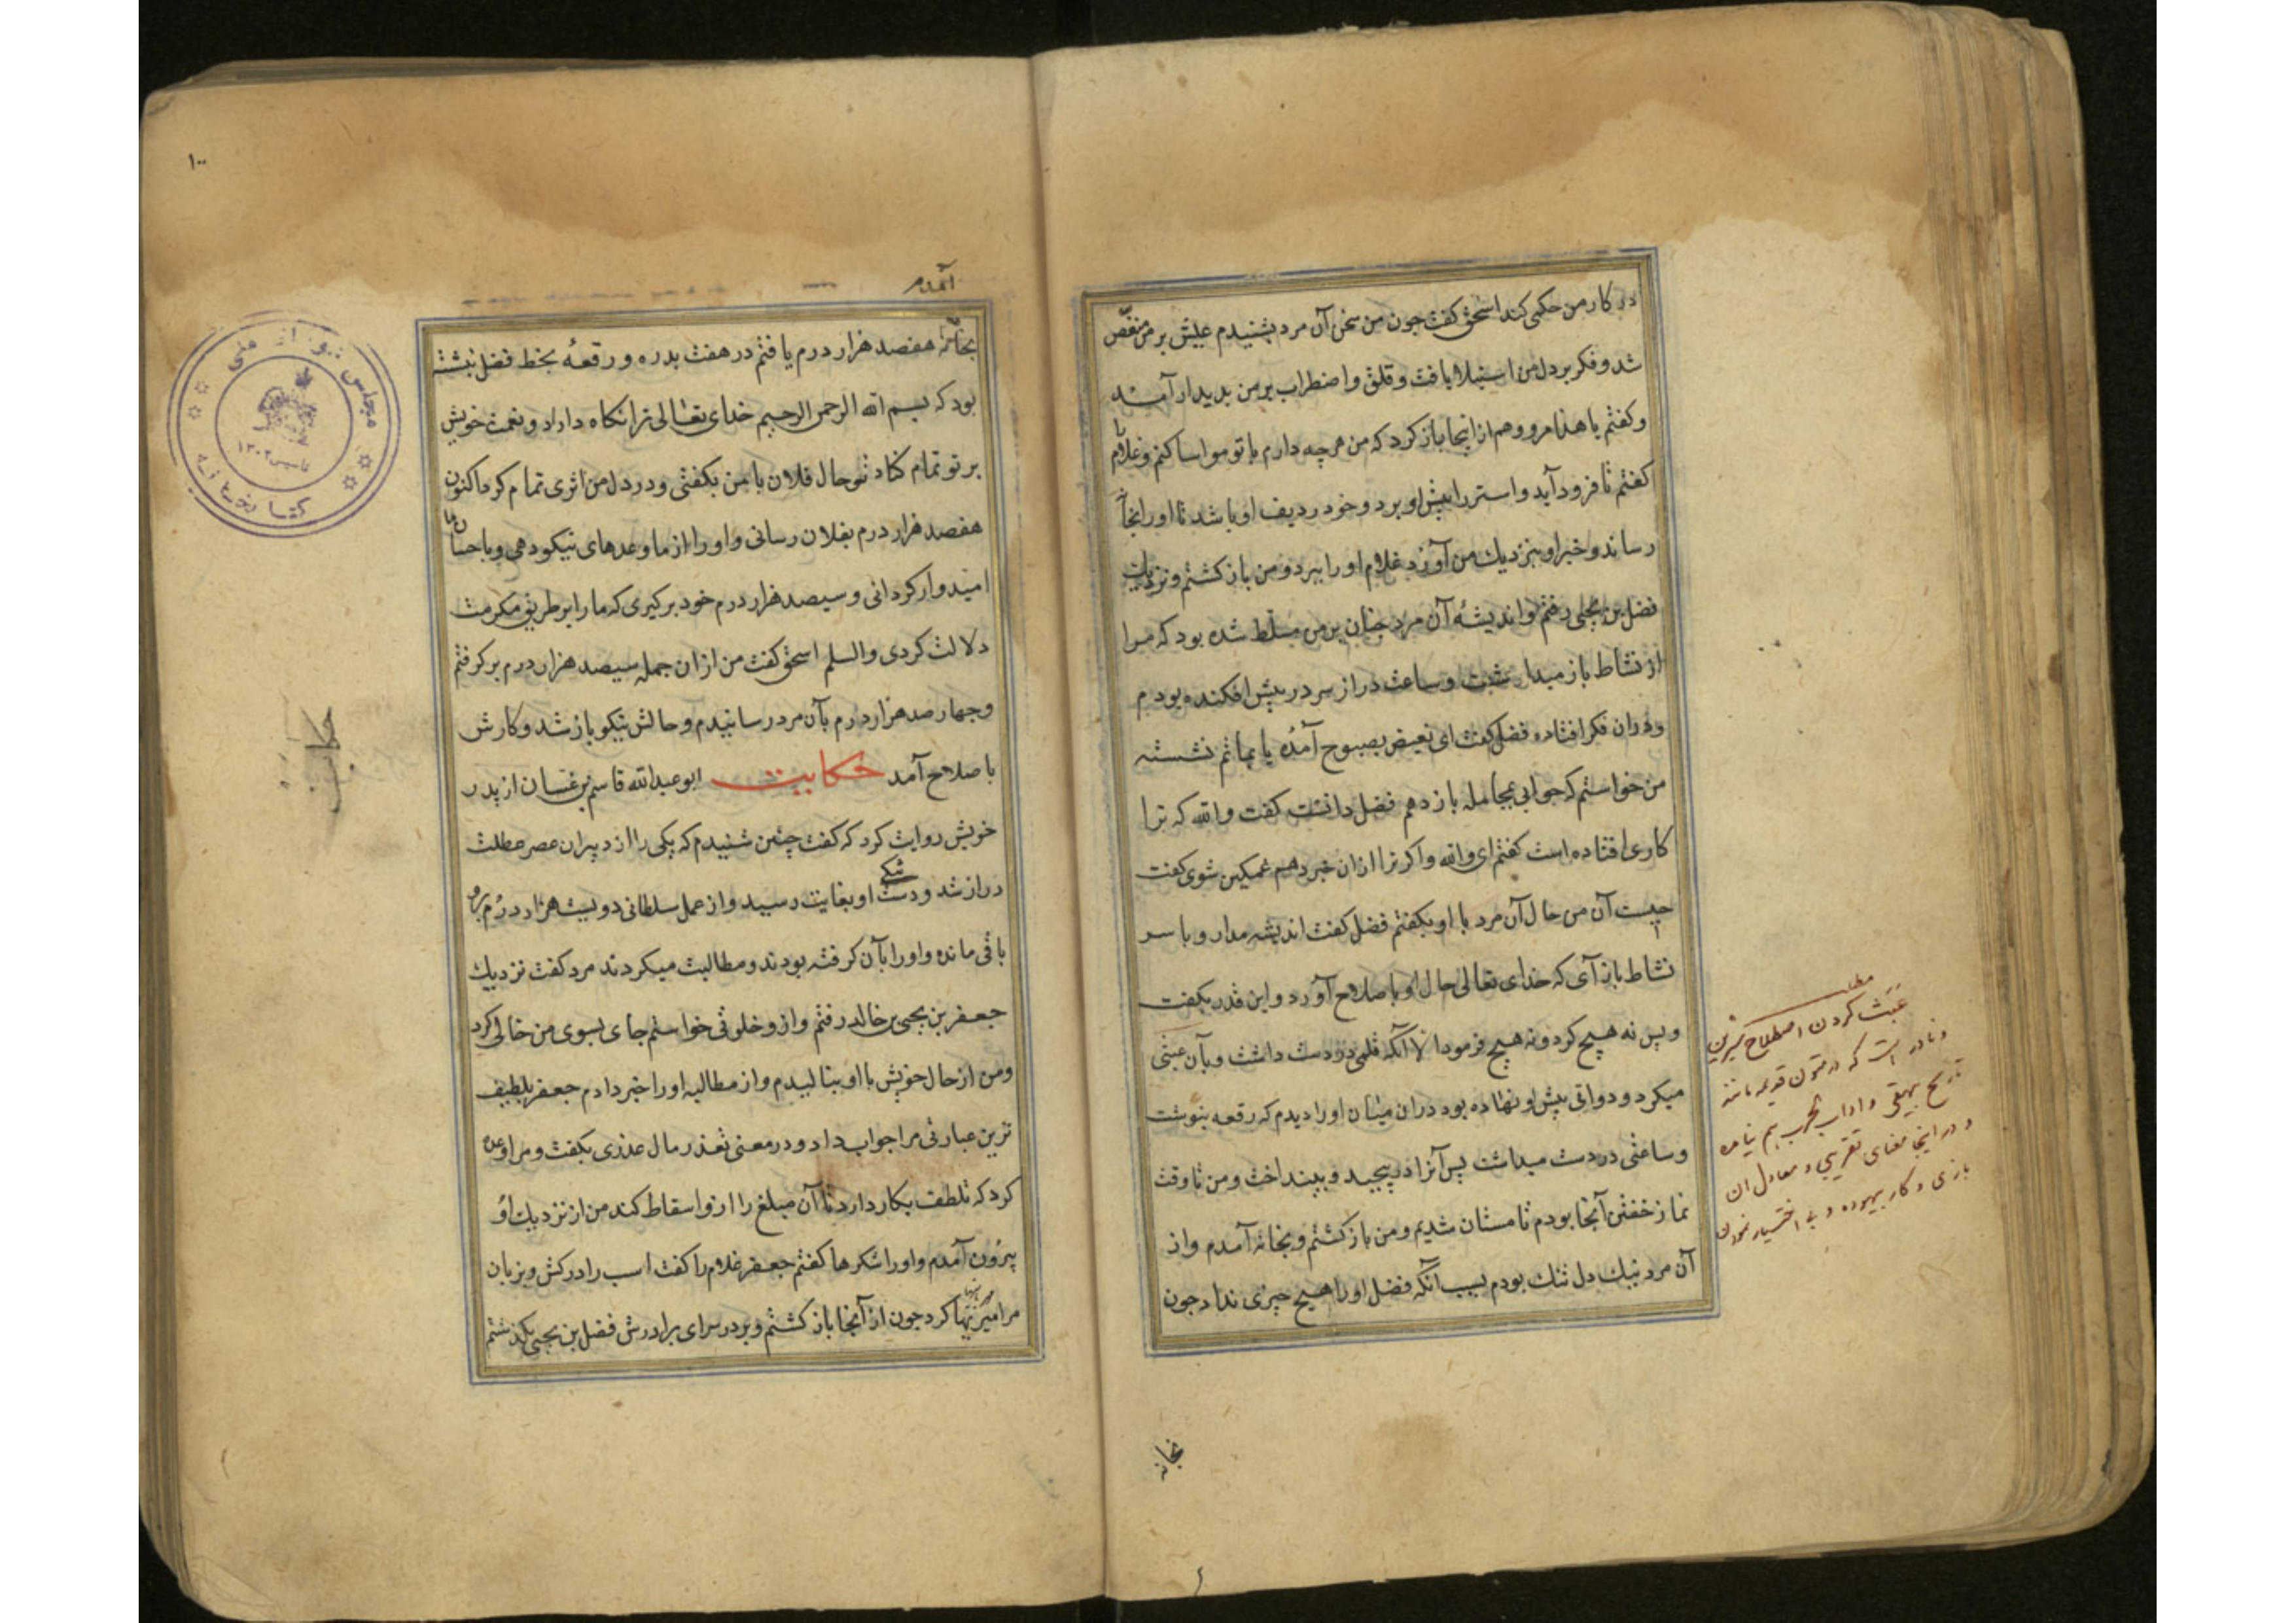 در کار من حکمی کند اسحق کفت جون من سخن آن مرد بشنیدم عیش بر من منغّص
شد و فکر بر دل من استیلا یافت و قلق و اضطراب بر من بدیدار آمد
و کفتم یا هذا مرو و هم از اینجا باز کرد که من هرچه دارم با تو مواسا کنم و غلام را
کفتم تا فرود آید و استر را پیش او برد و خود ردیف او باشد تا او را بخانه
رساند و خبر او بنزدیك من آورد غلام او را ببرد و من باز کشتم و نزدیك
فضل بن یحیی رفتم و اندیشهٔ آن مرد جنان بر من مسلّط شده بود که مرا
از نشاط باز میداشت و ساعت دراز سر در پیش افکنده بودم
و دران فکر افتاده فضل کفت ای بصبوح آمدهٔ یا بماتم نشسته
من خواستم که جوابی بمجامله باز دهم فضل دانست کفت والله که ترا
کاری افتاده است کفتم ای والله و اکر ترا ازان خبر دهم غمکین شوی کفت
چیست آن من حال آن مرد با او بکفتم فضل کفت اندیشه مدار و با سر
نشاط باز آی که خدای تعالی حال او با صلاح آورد و این قدر بکفت
و بس نه هیچ کرد و نه هیچ فرمود الا آنکه قلمی در دست داشت و بآن عبثی
میکرد و دواتی پیش او نهاده بود دران میان او را دیدم که رقعه بنوشت
و ساعتی در دست میداشت پس آنرا در پیچید و بینداخت و من تا وقت
نماز خفتن آنجا بودم تا مستان شدیم و من باز کشتم و بخانه آمدم و از
آن مرد نیك دل تنك بودم بسبب آنکه فضل او را هیچ چیزی نداد جون
بخانه
عبث کردن اصطلاح شیرین
و نادر است که در متون قدیمه مانند
تاریخ بیهقی و اداب الحرب هم نیامده
و در اینجا معنای تقریبی و معادل ان
بازی و کار بیهوده و بی اختیار نمودن
۱۰۰
آمدم
بخانه هفصد هزار درم یافتم در هفت بدره و رقعهٔ بخط فضل نبشته
بود که بسم الله الرحمن الرحیم خدای تعالی ترا نکاه داراد و نعمت خویش
بر تو تمام کناد تو حال فلان با من بکفتی و در دل من اثری تمام کرد اکنون
هفصد هزار درم بفلان رسانی و او را از ما وعدهای نیکو دهی و با حسان ما
امیدوار کردانی و سیصد هزار درم خود برکیری که ما را بر طریق مکرمت
دلالت کردی والسلم اسحق کفت من ازان جمله سیصد هزار درم برکرفتم
و چهار صد هزار درم بآن مرد رسانیدم و حالش نیکو باز شد و کارش
با صلاح آمد حکایت ابو عبدالله قاسم بن غسان از پدر
خویش روایت کرد که کفت چنین شنیدم که یکی را از دبیران عصر عطلت
دراز شد و دست تنکی او بغایت رسید و از عمل سلطانی دویست هزار درم برو
باقی مانده و او را بآن کرفته بودند و مطالبت میکردند مرد کفت نزدیك
جعفر بن یحیی بن خالد رفتم و ازو خلوتی خواستم جای بسوی من خالی کرد
و من از حال خویش با او بنالیدم و از مطالبه او را خبر دادم جعفر بلطیف
ترین عبارتی مرا جواب داد و در معنی تعذر مال عذری بکفت و مرا وعده
کرد که تلطف بکار دارد تا آن مبلغ را ازو اسقاط کند من از نزدیك او
بیرون آمدم و او را شکرها کفتم جعفر غلام را کفت اسب را درکش و بزبان
کرد جون از آنجا باز کشتم و بر در سرای برادرش فضل بن یحیی بکذشتم
حکایت
مجلس شورای ملی
تاسیس ۱۳۰۲
کتابخانه